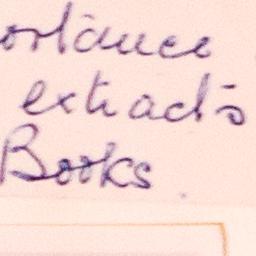 ortance
extracts
Books